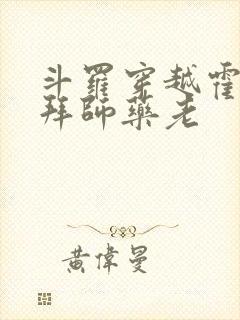 斗羅穿越霍
拜師藥老
黃偉曼